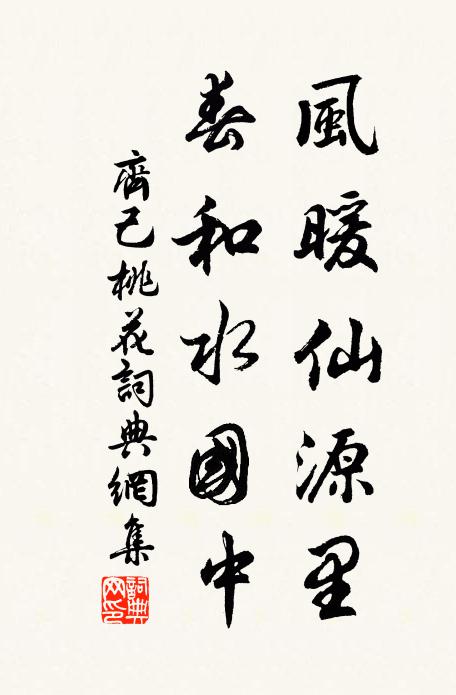 風暖仙源里
春和水國中
齊己桃花詞典網集
詞典
网印